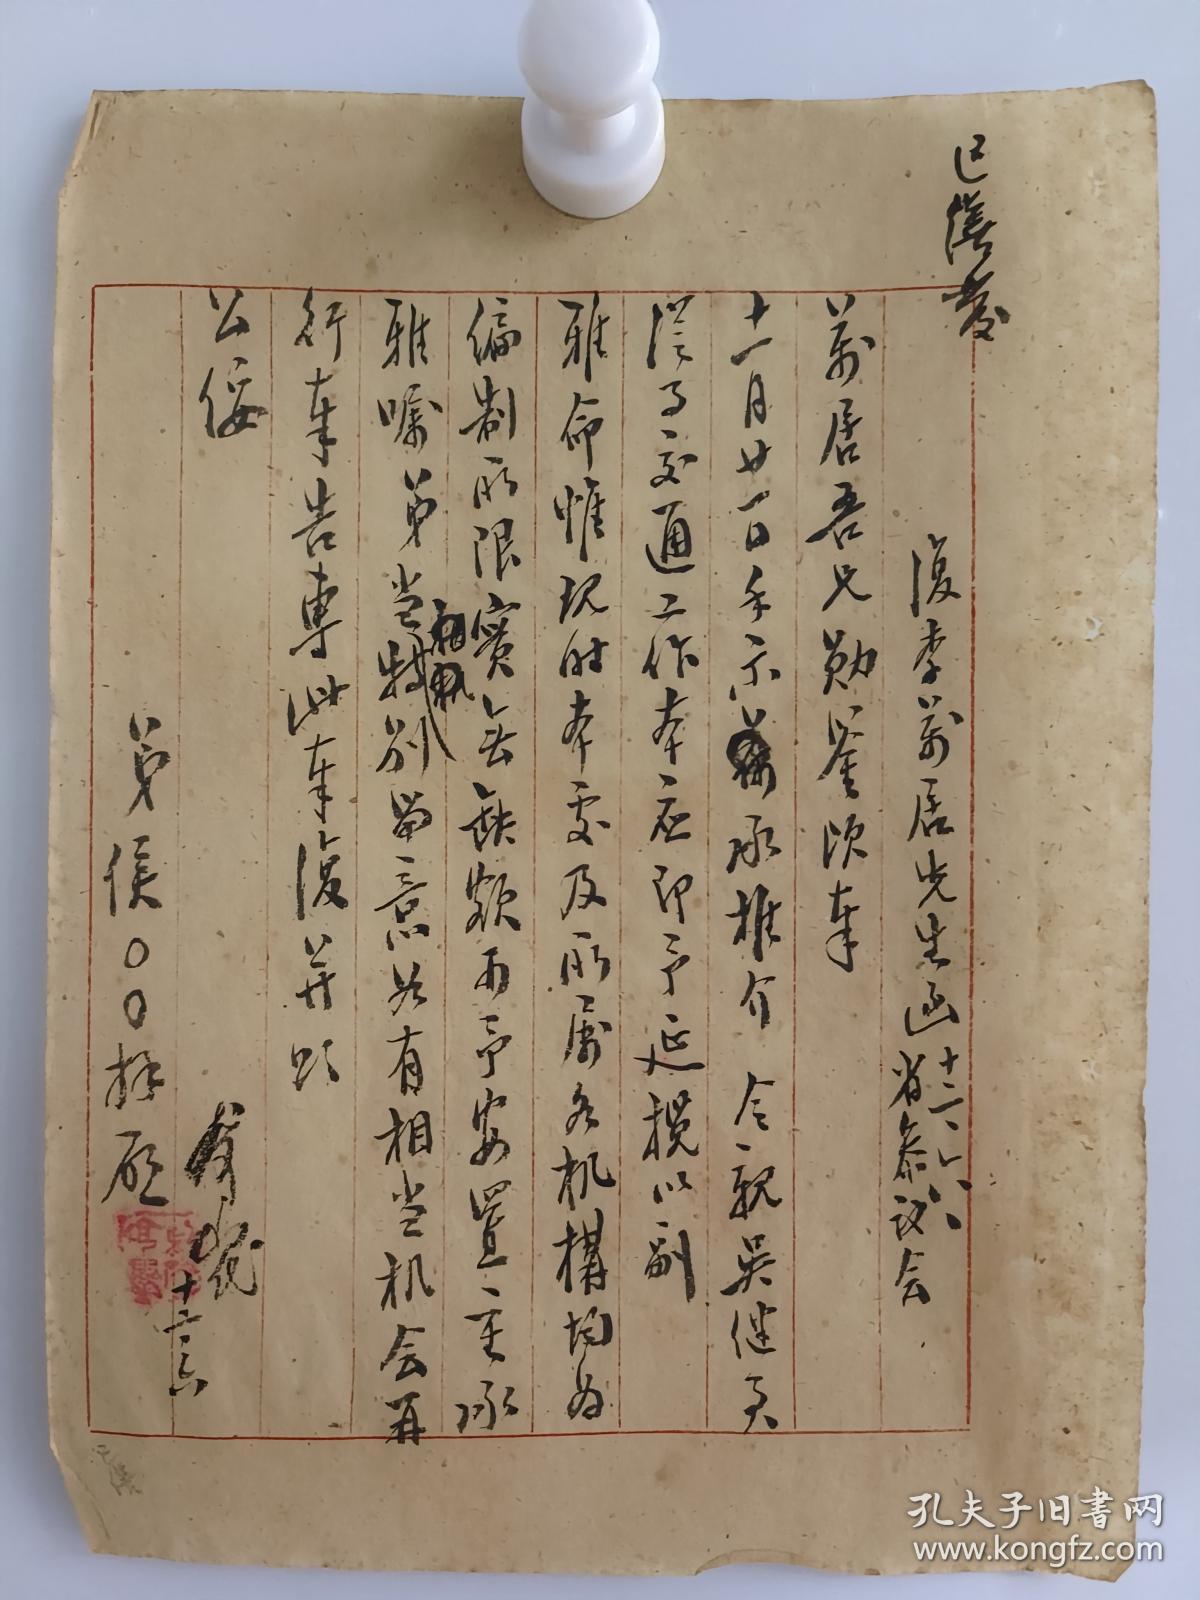 已缮发
復李萬居先生函 十二、六、
省参议会
萬居吾兄勋鉴顷奉
十一月廿一日手示承推介 令親吴继
从事交通工作本应即予延揽以副
雅命惟现时本处及所属各机構均为
编制所限實无缺额可予安置一至承
雅嘱弟当特别留意如有相当机会再
行奉告專此奉復并颂
公绥
弟侯○○拜啟
十二、六
孔夫子旧书网
www.kongfz.com